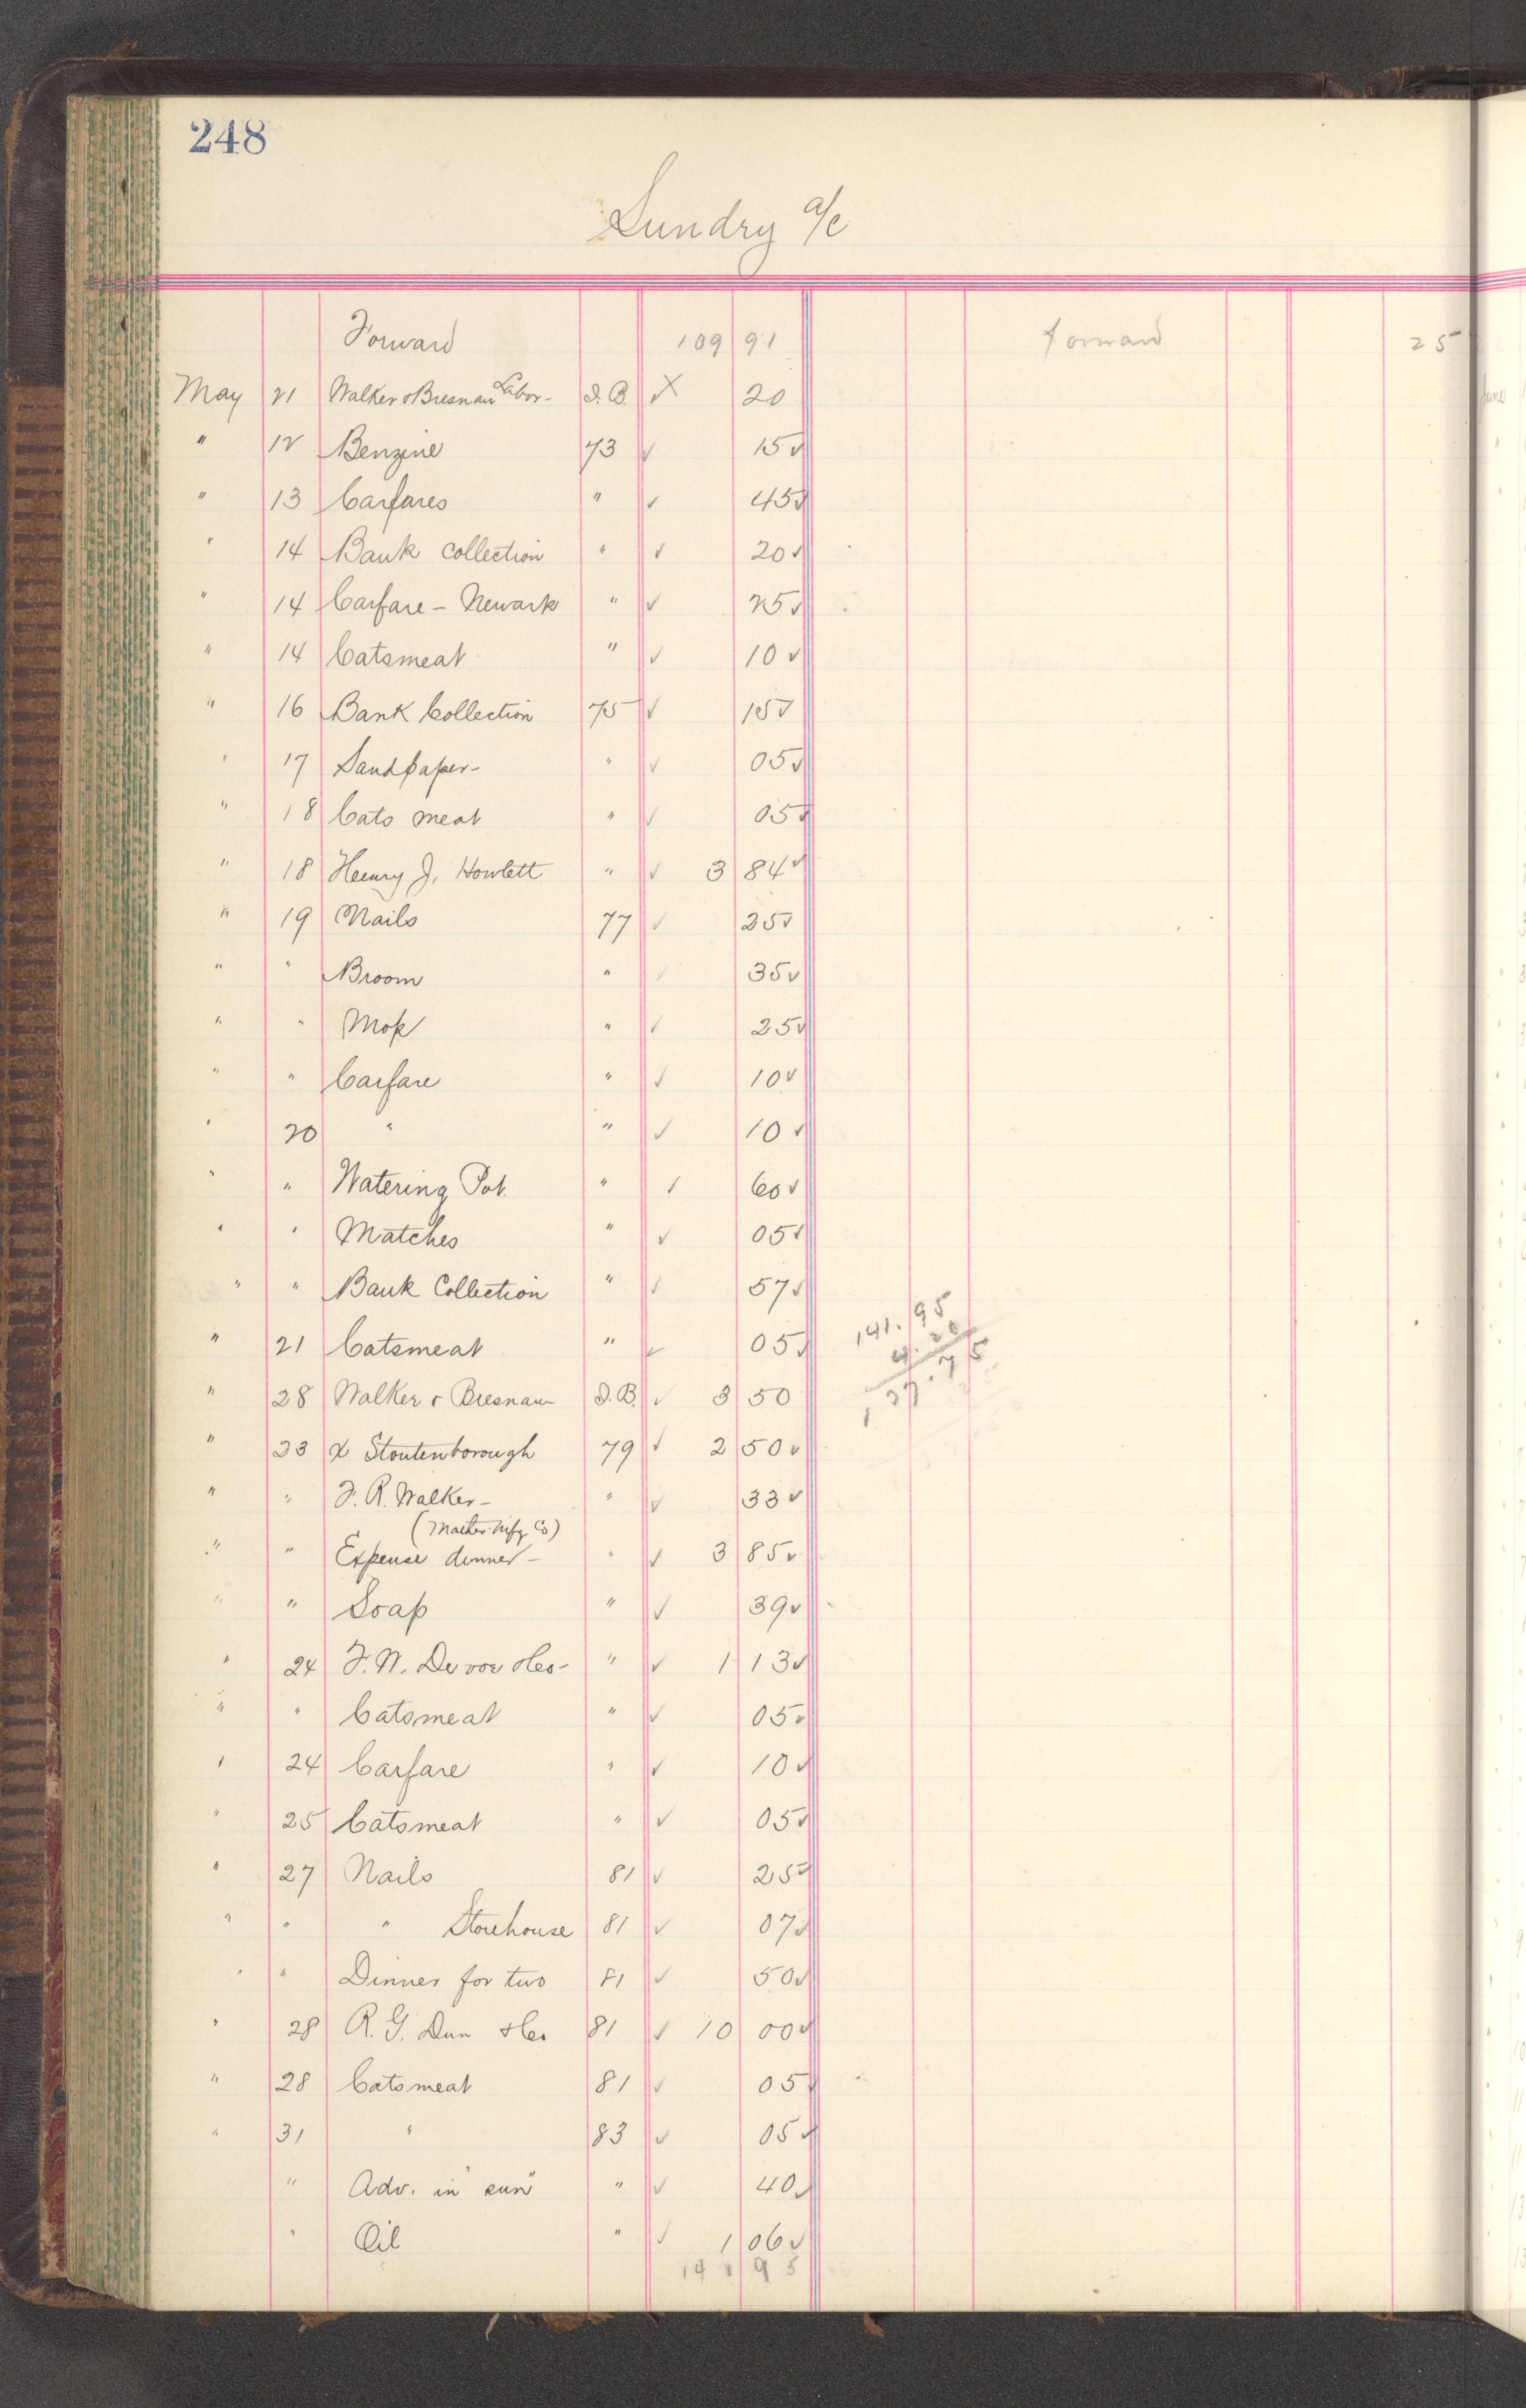 248
Sundry a/c
Forward 109 91 Forward 25
May 21 Walker & Bresnan Labor - D.B. X 20
" 12 Benzine 73 ✓ 15 ✓
" 13 Carfares " ✓ 45 ✓
" 14 Bank collection " ✓ 20 ✓
" 14 Carfare - Newark " ✓ 25 ✓
" 14 Catsmeat " ✓ 10 ✓
" 16 Bank Collection 75 ✓ 15 ✓
" 17 Sandpaper - " ✓ 05 ✓
" 18 Cats meat " ✓ 05 ✓
" 18 Henry J. Howlett " ✓ 3 84 ✓
" 19 Nails 77 ✓ 25 ✓
" " Broom " ✓ 35 ✓
" " Mop " ✓ 25 ✓
" " Carfare " ✓ 10 ✓
" 20 " " ✓ 10 ✓
" " Watering Pot. " ✓ 60 ✓
" " Matches " ✓ 05 ✓
" " Bank Collection " ✓ 57 ✓
" 21 Catsmeat " ✓ 05 ✓
141.95
4.20
137.75
" 28 Walker & Bresnan D.B. ✓ 3 50
" 23 X Stoutenborough 79 ✓ 2 50 ✓
" " F. R. Walker - " ✓ 33 ✓
Mfg. Co)
" " Expense dinner - " ✓ 3 85 ✓
" " Soap " ✓ 39 ✓
" 24 F. W. Devoe & Co - " ✓ 1 13 ✓
" " Catsmeat " ✓ 05 ✓
" 24 Carfare " ✓ 10 ✓
" 25 Catsmeat " ✓ 05 ✓
" 27 Nails 81 ✓ 25 ✓
" " " Storehouse 81 ✓ 07 ✓
" " Dinner for two 81 ✓ 50 ✓
" 28 R. G. Dun & Co 81 ✓ 10 00 ✓
" 28 Catsmeat 81 ✓ 05 ✓
" 31 " 83 ✓ 05 ✓
" Adv. in "sun" " ✓ 40 ✓
" Oil " ✓ 1 06 ✓
141 95
June